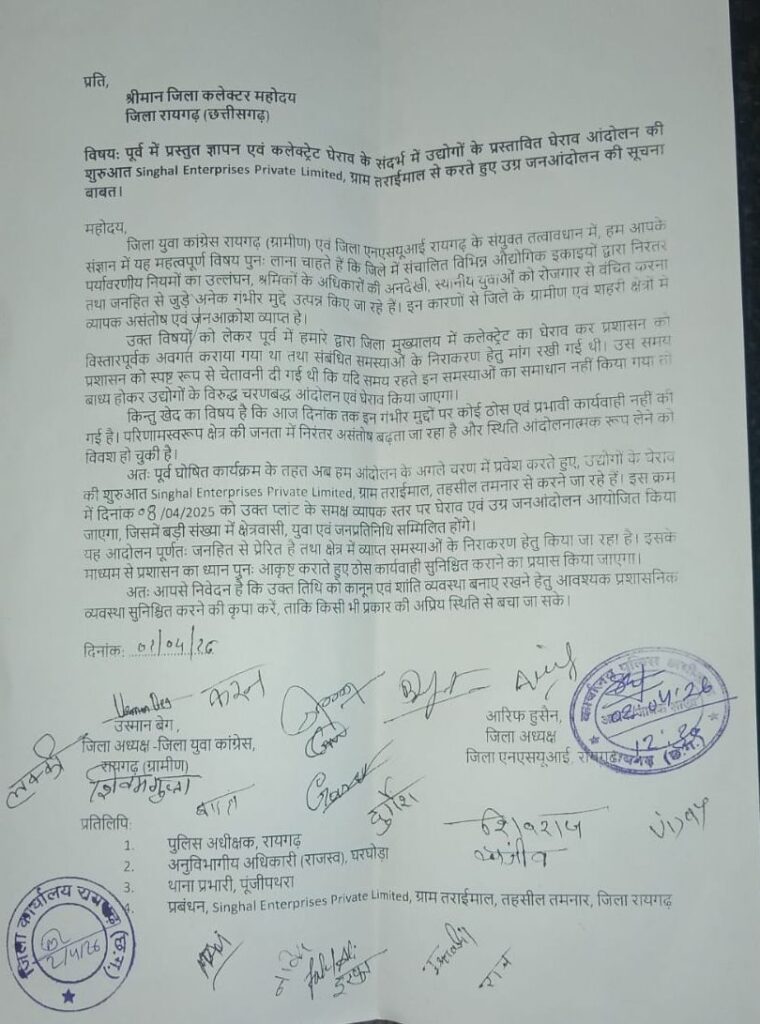 प्रति,
श्रीमान जिला कलेक्टर महोदय
जिला रायगढ़ (छत्तीसगढ़)
विषय: पूर्व में प्रस्तुत ज्ञापन एवं कलेक्ट्रेट घेराव के संदर्भ में उद्योगों के प्रस्तावित घेराव आंदोलन की
शुरुआत Singhal Enterprises Private Limited, ग्राम तराईमाल से करते हुए उग्र जनआंदोलन की सूचना
बाबत।
महोदय,
जिला युवा कांग्रेस रायगढ़ (ग्रामीण) एवं जिला एनएसयूआई रायगढ़ के संयुक्त तत्वावधान में, हम आपके
संज्ञान में यह महत्वपूर्ण विषय पुनः लाना चाहते हैं कि जिले में संचालित विभिन्न औद्योगिक इकाइयों द्वारा निरंतर
पर्यावरणीय नियमों का उल्लंघन, श्रमिकों के अधिकारों की अनदेखी, स्थानीय युवाओं को रोजगार से वंचित करना
तथा जनहित से जुड़े अनेक गंभीर मुद्दे उत्पन्न किए जा रहे हैं। इन कारणों से जिले के ग्रामीण एवं शहरी क्षेत्रों में
व्यापक असंतोष एवं जनआक्रोश व्याप्त है।
उक्त विषयों को लेकर पूर्व में हमारे द्वारा जिला मुख्यालय में कलेक्ट्रेट का घेराव कर प्रशासन को
विस्तारपूर्वक अवगत कराया गया था तथा संबंधित समस्याओं के निराकरण हेतु मांग रखी गई थी। उस समय
प्रशासन को स्पष्ट रूप से चेतावनी दी गई थी कि यदि समय रहते इन समस्याओं का समाधान नहीं किया गया तो
बाध्य होकर उद्योगों के विरुद्ध चरणबद्ध आंदोलन एवं घेराव किया जाएगा।
किन्तु खेद का विषय है कि आज दिनांक तक इन गंभीर मुद्दों पर कोई ठोस एवं प्रभावी कार्यवाही नहीं की
गई है। परिणामस्वरूप क्षेत्र की जनता में निरंतर असंतोष बढ़ता जा रहा है और स्थिति आंदोलनात्मक रूप लेने को
विवश हो चुकी है।
अतः पूर्व घोषित कार्यक्रम के तहत अब हम आंदोलन के अगले चरण में प्रवेश करते हुए, उद्योगों के घेराव
की शुरुआत Singhal Enterprises Private Limited, ग्राम तराईमाल, तहसील तमनार से करने जा रहे हैं। इस क्रम
में दिनांक 08/04/2025 को उक्त प्लांट के समक्ष व्यापक स्तर पर घेराव एवं उग्र जनआंदोलन आयोजित किया
जाएगा, जिसमें बड़ी संख्या में क्षेत्रवासी, युवा एवं जनप्रतिनिधि सम्मिलित होंगे।
यह आदोलन पूर्णतः जनहित से प्रेरित है तथा क्षेत्र में व्याप्त समस्याओं के निराकरण हेतु किया जा रहा है। इसके
माध्यम से प्रशासन का ध्यान पुनः आकृष्ट कराते हुए ठोस कार्यवाही सुनिश्चित कराने का प्रयास किया जाएगा।
अतः आपसे निवेदन है कि उक्त तिथि को कानून एवं शांति व्यवस्था बनाए रखने हेतु आवश्यक प्रशासनिक
व्यवस्था सुनिश्चित करने की कृपा करें, ताकि किसी भी प्रकार की अप्रिय स्थिति से बचा जा सके।
दिनांक: 02/04/26
करन
उस्मान बेग,
जिला अध्यक्ष -जिला युवा कांग्रेस,
रायगढ़ (ग्रामीण)
आरिफ हुसैन,
जिला अध्यक्ष
जिला एनएसयूआई, रायगढ़
कार्यालय पुलिस
02/04/26
12:28
(छ.ग.)
लक्की
शिवमगुप्ता
दुर्गेश
शिवराज
संजीव
Vijay
प्रतिलिपि:
1. पुलिस अधीक्षक, रायगढ़
2. अनुविभागीय अधिकारी (राजस्व), घरघोड़ा
3. थाना प्रभारी, पूंजीपथरा
4. प्रबंधन, Singhal Enterprises Private Limited, ग्राम तराईमाल, तहसील तमनार, जिला रायगढ़
जिला कार्यालय रायगढ़ (छ.ग.)
2/4/26
राम